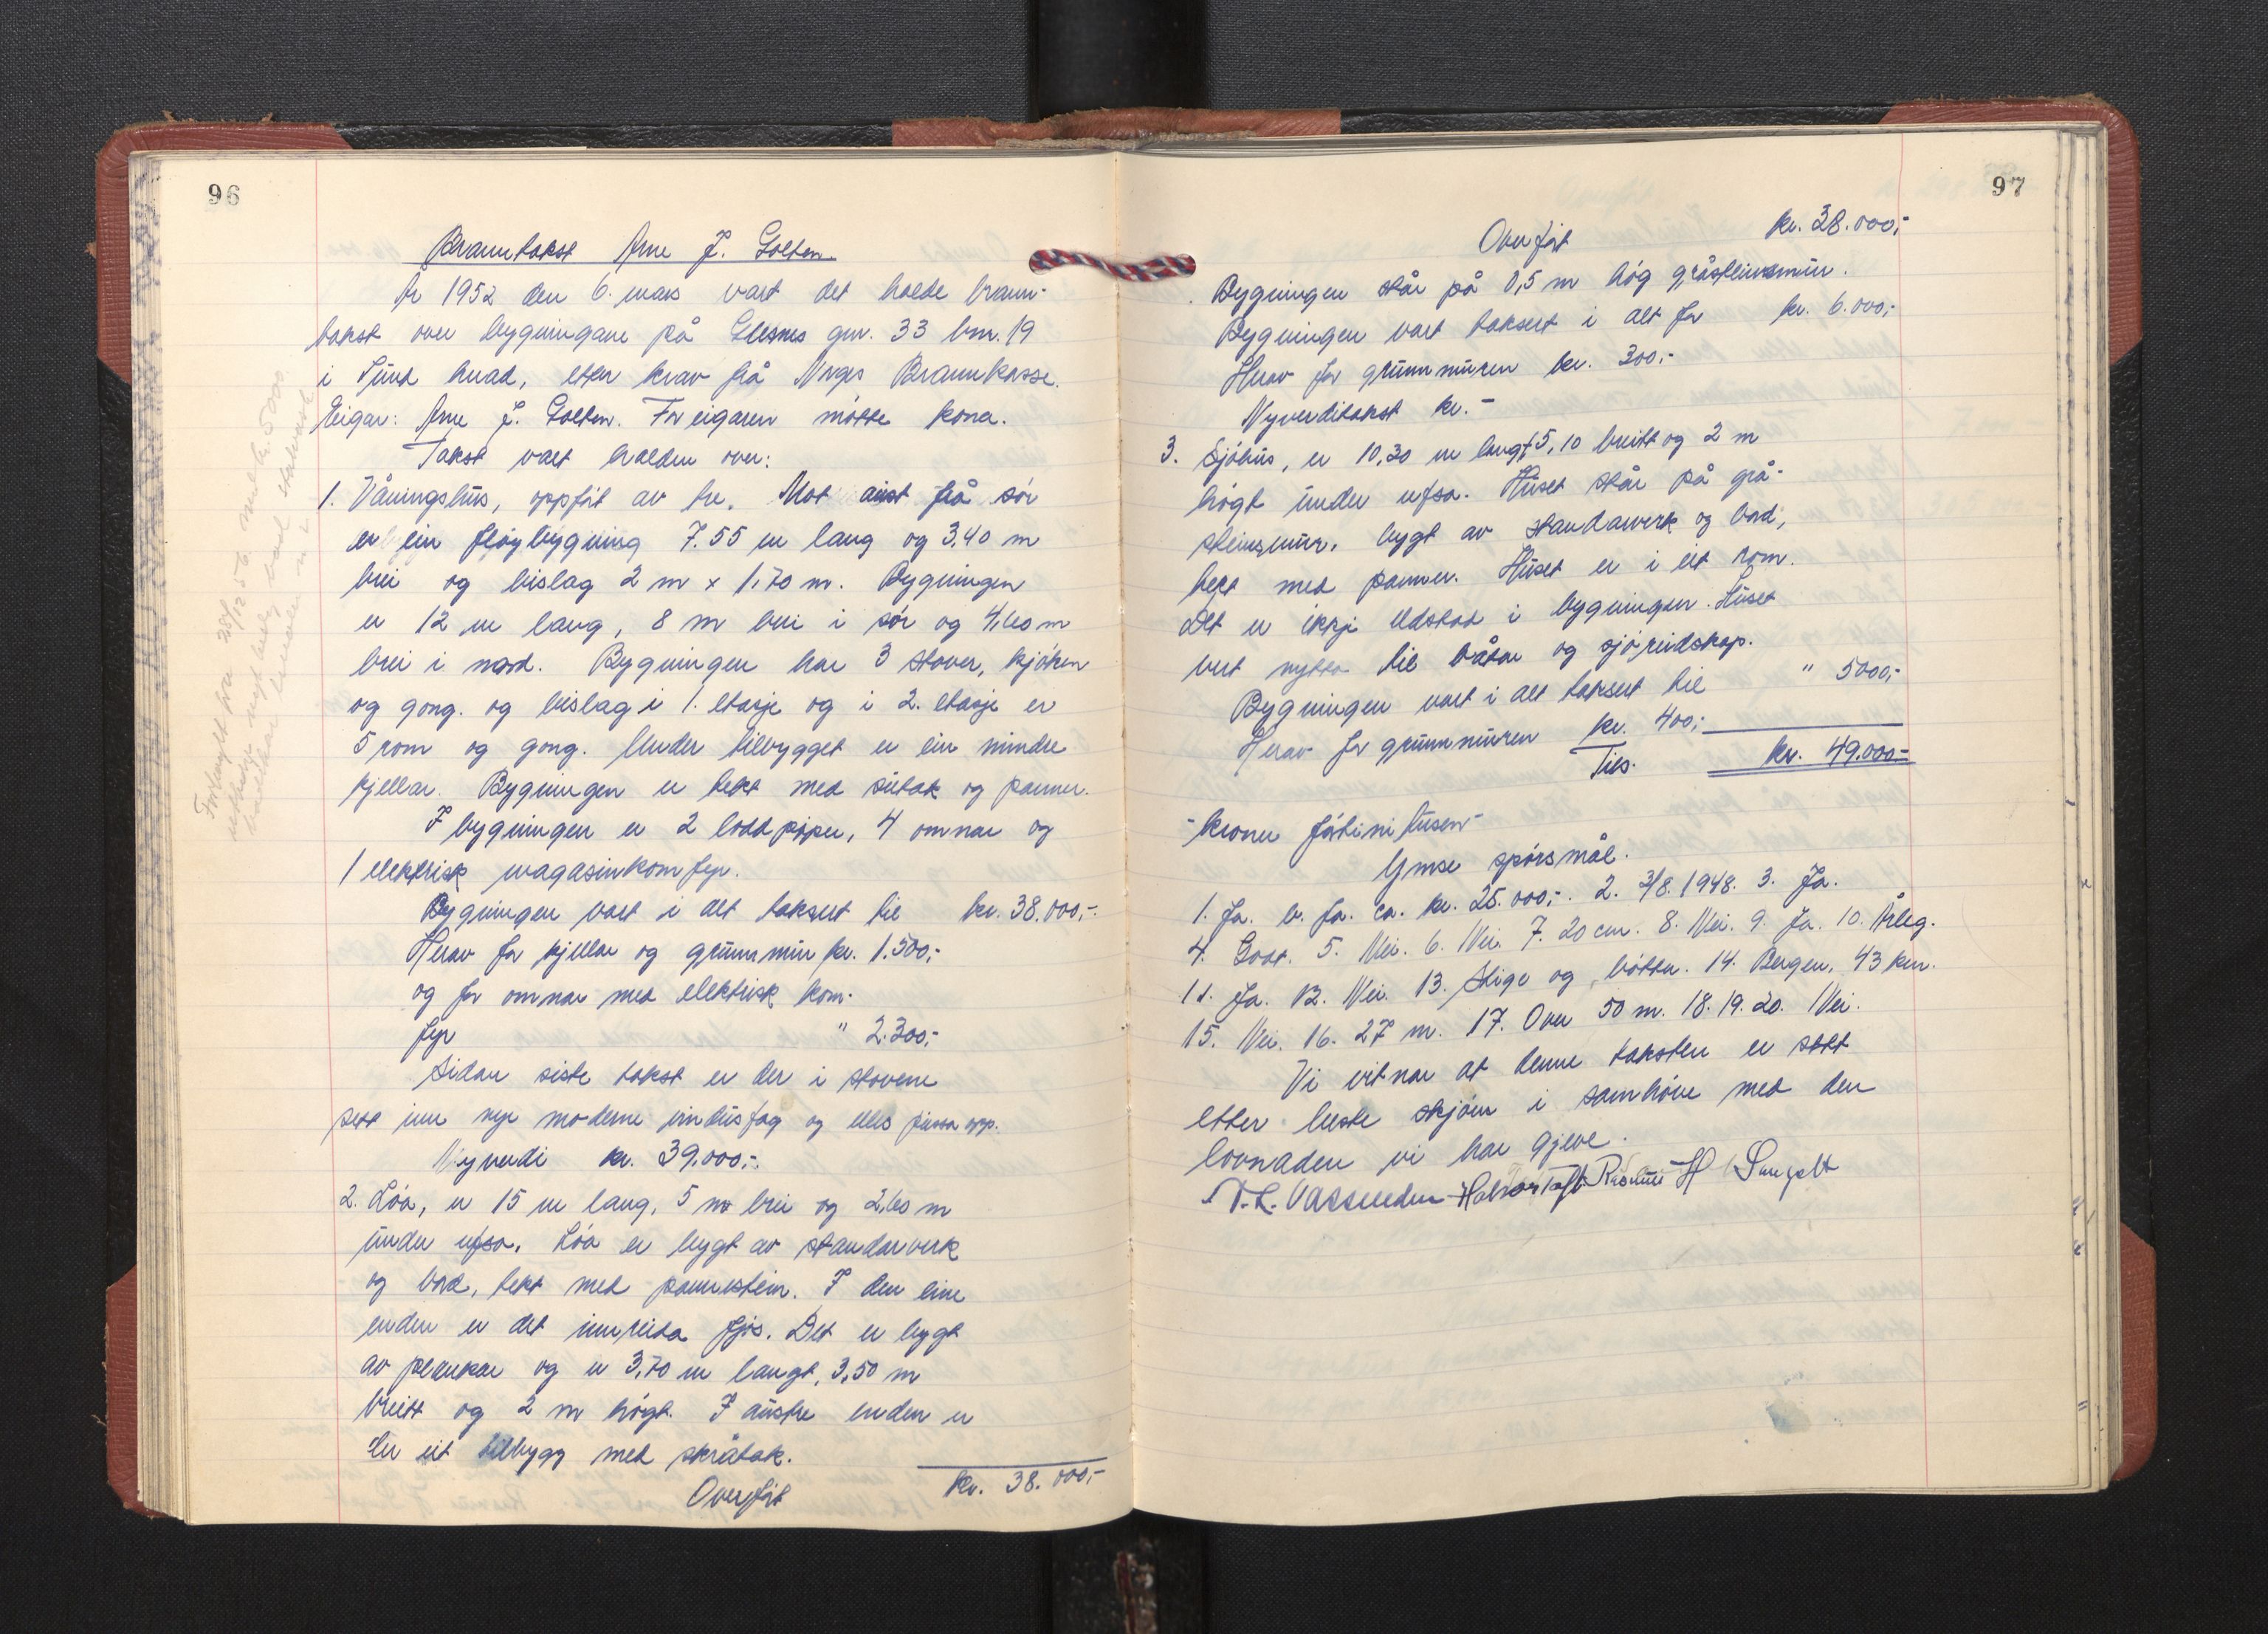 96
Branntakst Arne J. Golten
År 1952 den 6. mars vart det halde brann-
takst over bygningane på Glesnes gnr. 33 bnr. 19
i Sund herad, etter krav frå Norges Brannkasse.
Eigar: Arne J. Golten. For eigaren møtte kona.
Takst vart halden over:
1. Våningshus, oppført av tre. Mot aust frå sør
er ein fløybygning 7.55 m lang og 3,40 m
brei og bislag 2 m x 1,70 m. Bygningen
er 12 m lang, 8 m brei i sør og 4,60 m
brei i nord. Bygningen har 3 stover, kjøken
og gong. og bislag i 1. etasje og i 2. etasje er
5 rom og gong. Under tilbygget er ein mindre
kjellar. Bygningen er tekt med sutak og panner.
I bygningen er 2 loddpiper, 4 omnar og
1 elektrisk magasinkomfyr.
Bygningen vart i alt taksert til kr. 38.000,-
Herav for kjellar og grunnmur kr. 1.500,-
og for omnar med elektrisk kom-
fyr " 2.300,-
Sidan siste takst er der i stovene
sett inn nye moderne vindusfag og elles pussa opp.
Nyverdi kr. 39.000,-
2. Løa, er 15 m lang, 5 m brei og 2,60 m
under ufsa. Løa er bygt av standarverk
og bord, tekt med pannestein. I den eine
enden er det innreida fjøs. Det er bygt
av plankar og er 3,70 m langt, 3,50 m
breitt og 2 m høgt. I austre enden er
der eit tilbygg med skråtak.
Overført kr. 38.000,-
97
Overført kr. 38.000,-
Bygningen står på 0,5 m høg gråsteinsmur.
Bygningen vart taksert i alt for kr. 6.000,-
Herav for grunnmuren kr. 300,-
Nyverditakst kr. -
3. Sjøhus, er 10,30 m langt, 5,10 breitt og 2 m
høgt under ufsa. Huset står på grå-
steinsmur, bygt av standarverk og bord,
tekt med panner. Huset er i eit rom.
Det er ikkje eldstad i bygningen. Huset
vert nytta til båtar og sjøreidskap.
Bygningen vart i alt taksert til " 5000,-
Herav for grunnmuren kr. 400,-
Tils. kr. 49.000,-
- kroner førtinitusen -
Ymse spørsmål.
1. Ja. b. Ja. ca. kr. 25.000,-. 2. 3/8. 1948. 3. Ja.
4. Godt. 5. Nei. 6. Nei. 7. 20 cm. 8. Nei. 9. Ja. 10. Årleg.
11. Ja. 12. Nei. 13. Stige og bøtter. 14. Bergen, 43 km.
15. Nei. 16. 27 m. 17. Over 50 m. 18. 19. 20. Nei.
Vi vitnar at denne taksten er sett
etter beste skjøn i samhøve med den
lovnaden vi har gjeve.
Vassenden Halvor Toft Rasmus H